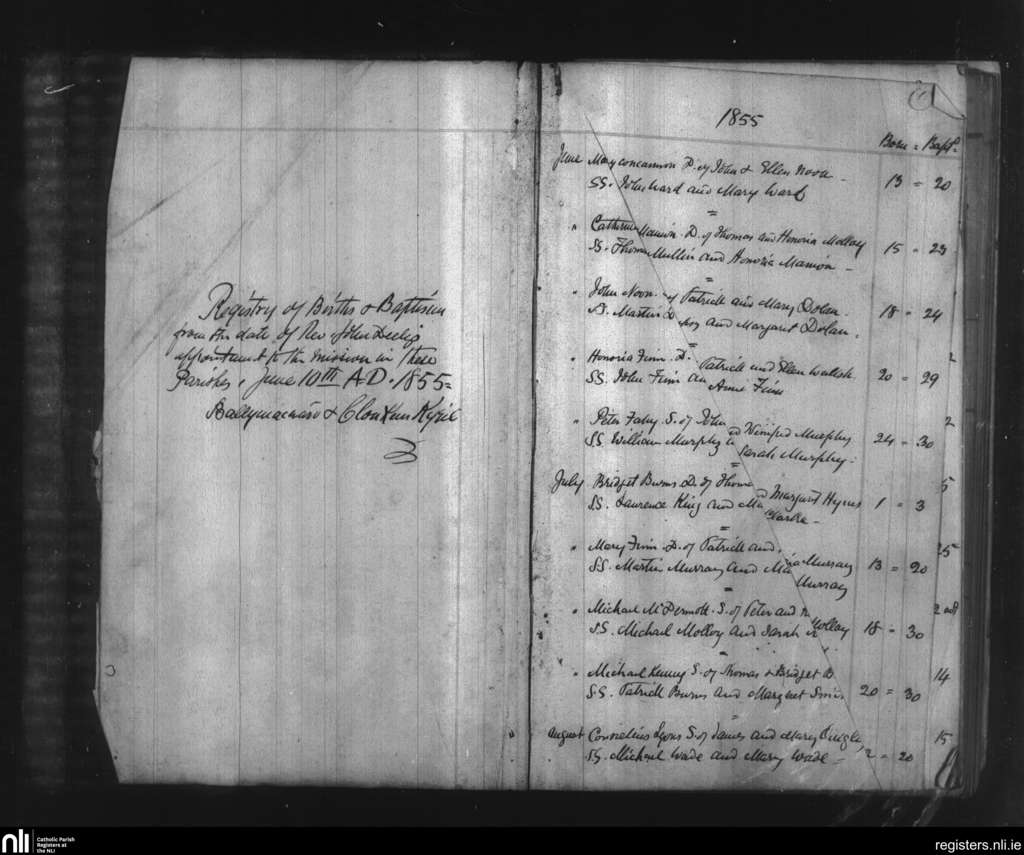 Registry of Births & Baptisim
from the date of Rev John
appointment to the mission in These
Parishes, June 10th A.D. 1855=
&
1
1855
Born = Bapt.
June Mary concannon D. of John & Ellen
SS. John Ward and Mary Ward
13 = 20
" Catherine Mannion D. of Thomas and Honoria Molloy
SS. Thomas Mullin and Honoria Mannion
15 = 23
" John Noon of Patrick and Mary Dolan
SS. Martin and Margaret Dolan
18 = 24
" Honoria Finn D. Patrick and Ellen
SS. John Finn an Anne Finn
20 = 29
2
" Peter Fahy S. of John Winifred Murphy
SS William Murphy Sarah Murphy
24 = 30
2
July Bridget Burns D. of Thoma Margaret Hynes
SS. Laurence King and Ma Clarke
1 = 3
5
" Mary Finn D. of Patrick and Murray
SS. Martin Murray and Ma Murray
13 = 20
25
" Michael McDermott S. of Peter and Molloy
SS. Michael Molloy and Sarah
18 = 30
2
" Michael Kenny S. of Thomas & Bridget
SS. Patrick Burns and Margaret
20 = 30
14
August Cornelius Lyons S. of James and Mary
SS. Michael Wade and Mary Wade
2 = 20
15
nli
Catholic Parish
Registers at
the NLI
registers.nli.ie